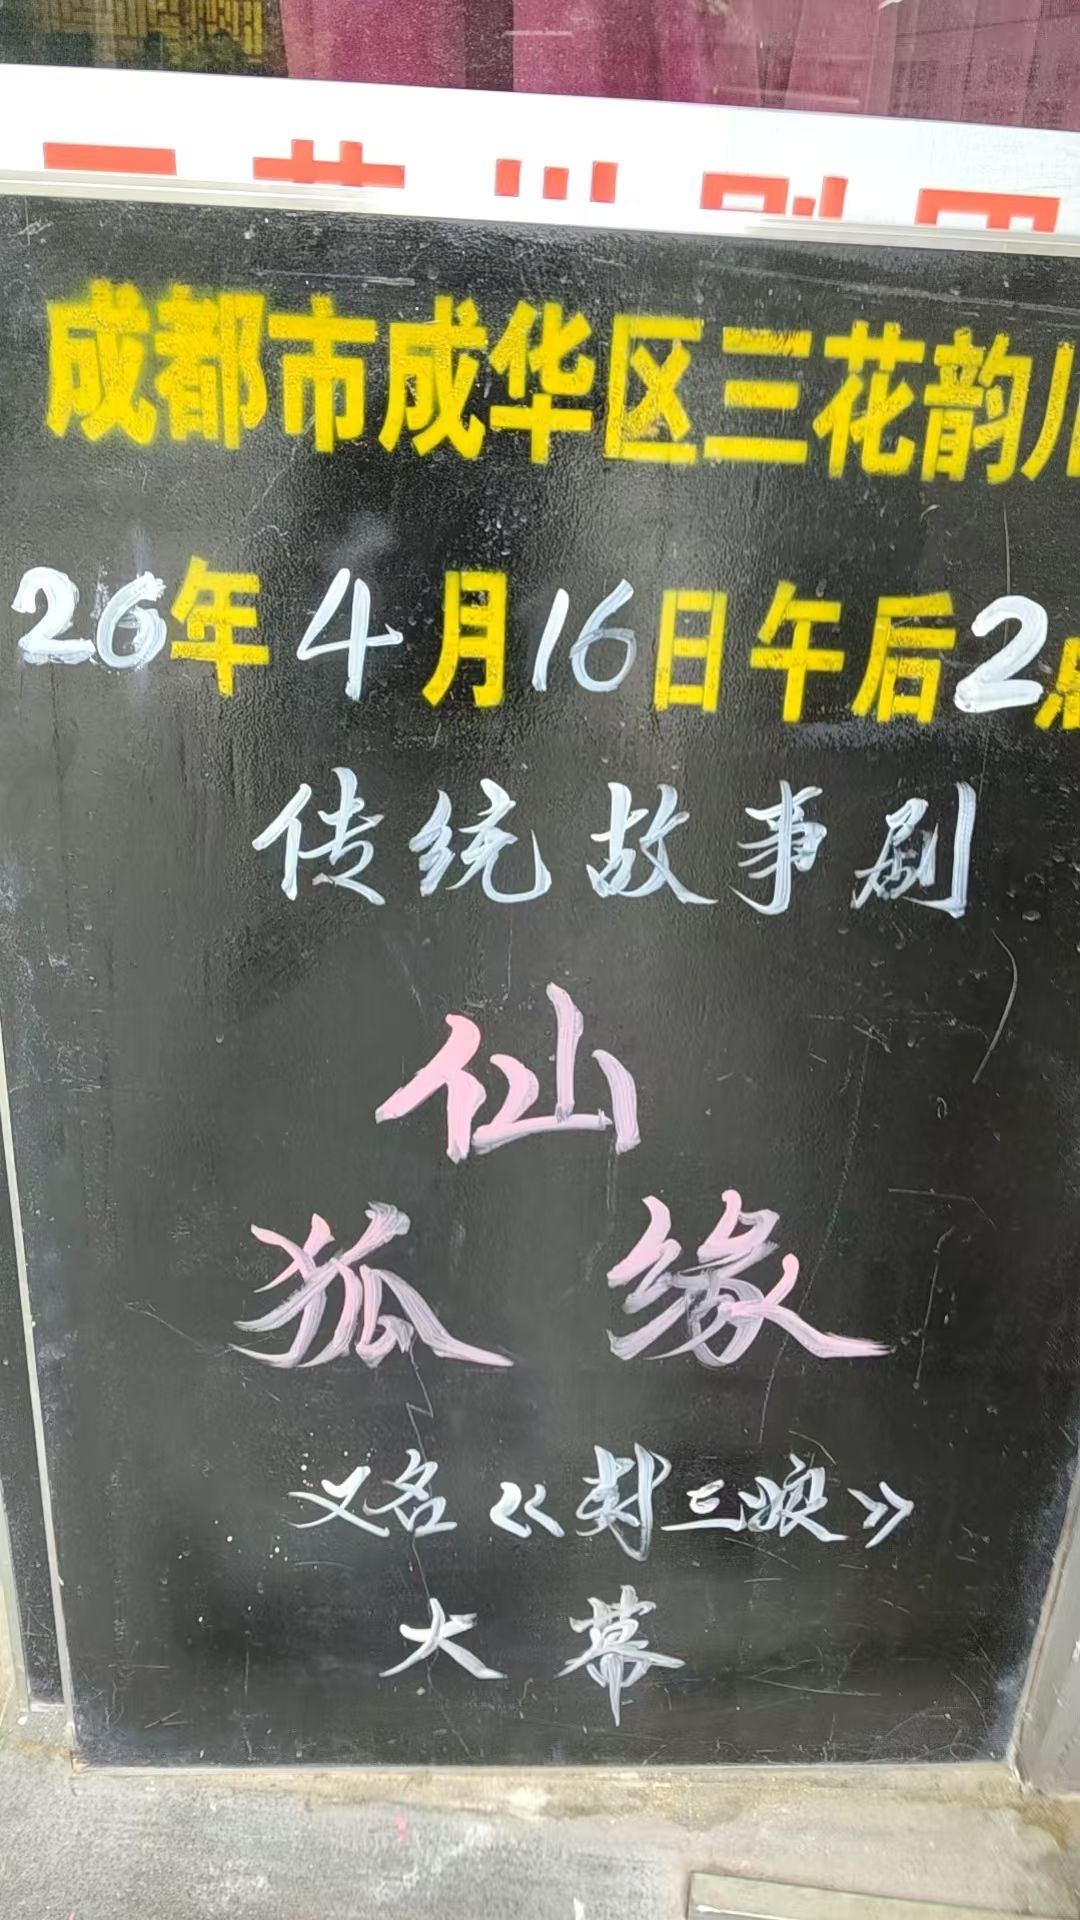 成都市成华区三花韵川
26年4月16日午后2点
传统故事剧
仙
狐缘
又名《封三娘》
大幕